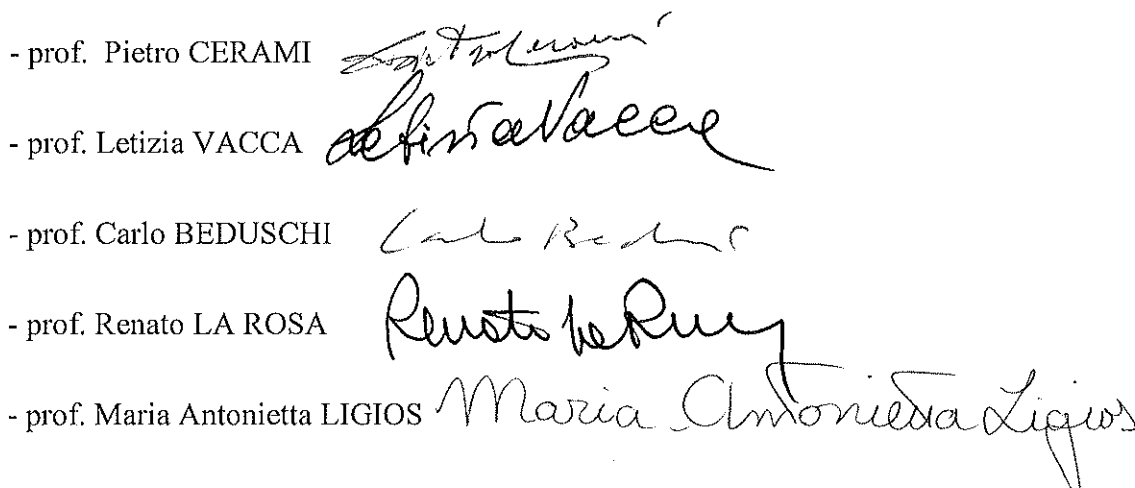 - prof. Pietro CERAMI
- prof. Letizia VACCA Letizia Vacca
- prof. Carlo BEDUSCHI Carlo Beduschi
- prof. Renato LA ROSA Renato La Rosa
- prof. Maria Antonietta LIGIOS Maria Antonietta Ligios